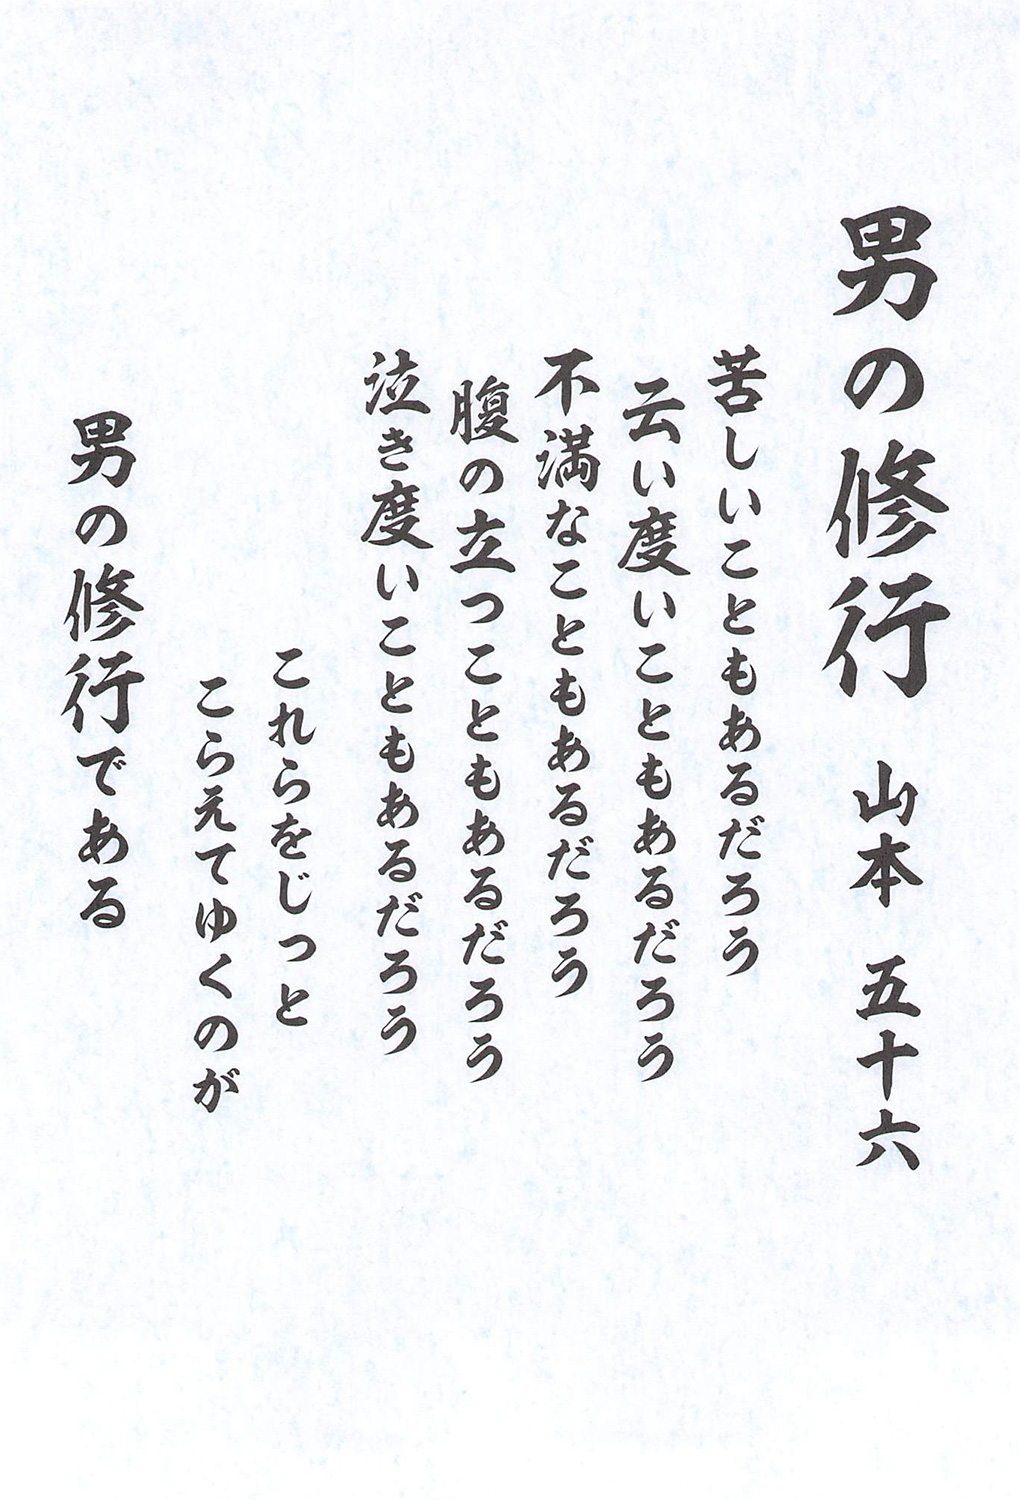 男の修行 山本 五十六
苦しいこともあるだろう
云い度いこともあるだろう
不満なこともあるだろう
腹の立つこともあるだろう
泣き度いこともあるだろう
これらをじっと
こらえてゆくのが
男の修行である